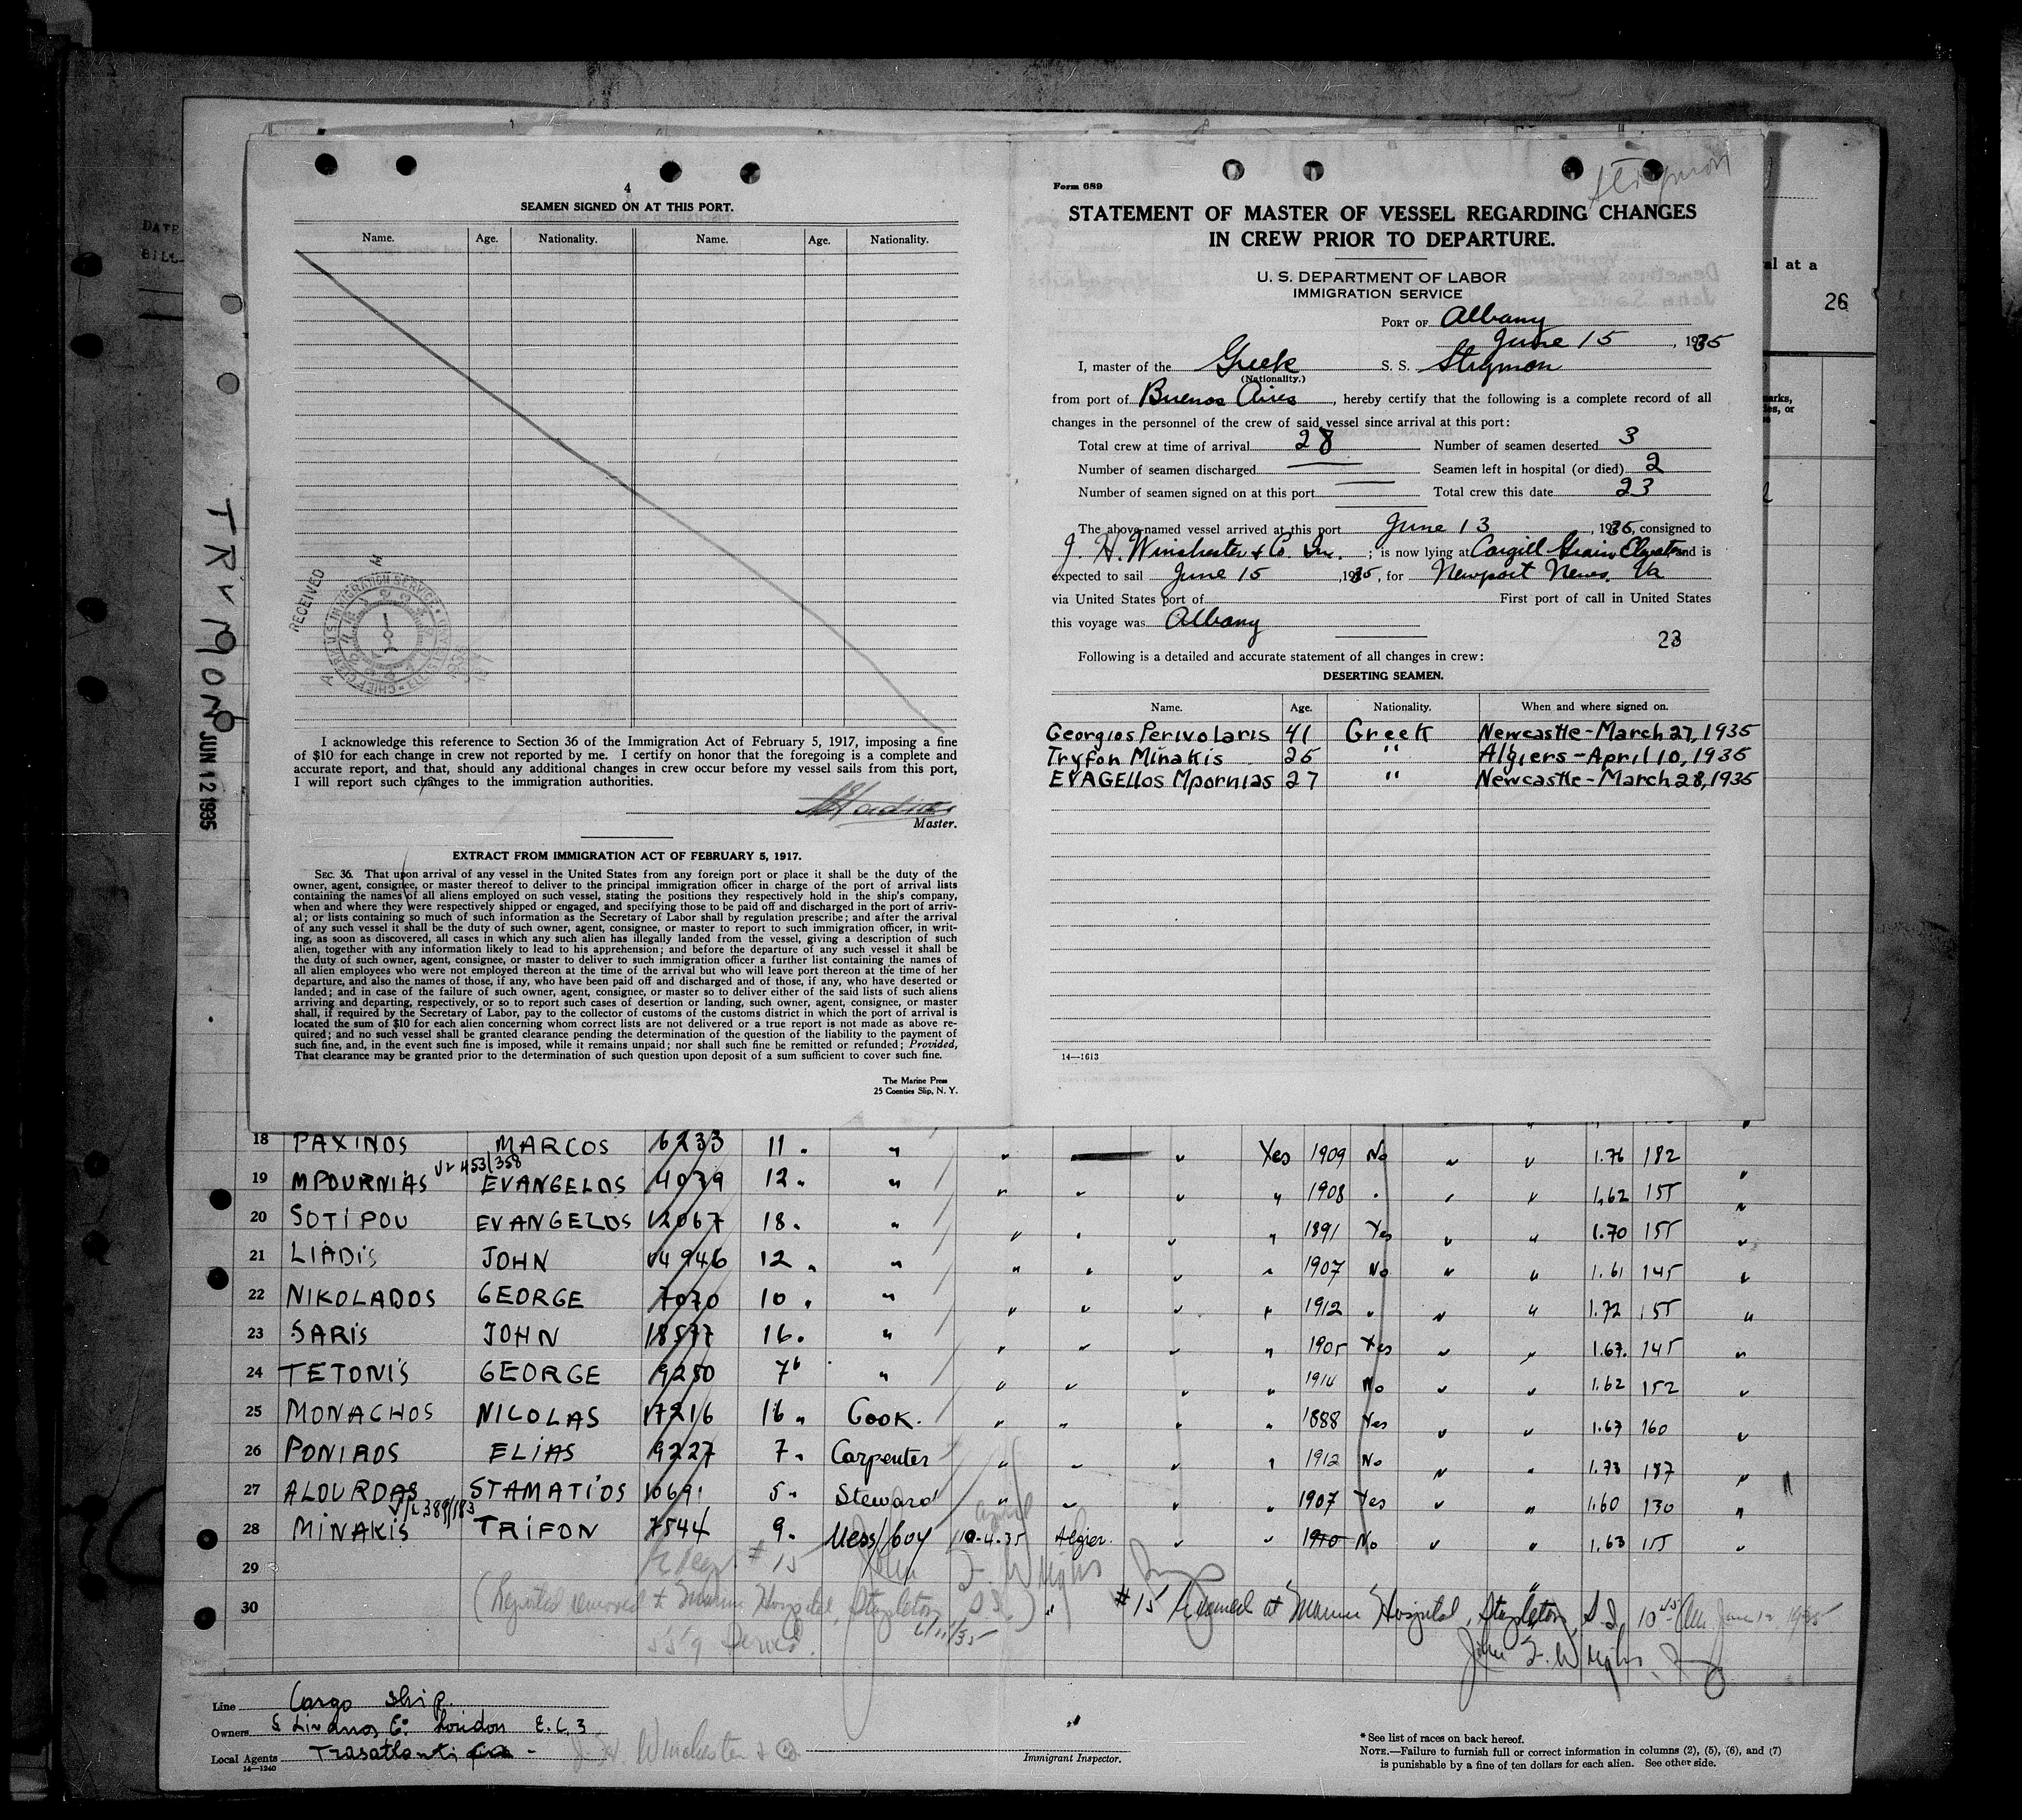 4
SEAMEN SIGNED ON AT THIS PORT.
Name. Age. Nationality. Name. Age. Nationality.
RECEIVED
I acknowledge this reference to Section 36 of the Immigration Act of February 5, 1917, imposing a fine
of $10 for each change in crew not reported by me. I certify on honor that the foregoing is a complete and
accurate report, and that, should any additional changes in crew occur before my vessel sails from this port,
I will report such changes to the immigration authorities.
Master.
EXTRACT FROM IMMIGRATION ACT OF FEBRUARY 5, 1917.
SEC. 36. That upon arrival of any vessel in the United States from any foreign port or place it shall be the duty of the
owner, agent, consignee, or master thereof to deliver to the principal immigration officer in charge of the port of arrival lists
containing the names of all aliens employed on such vessel, stating the positions they respectively hold in the ship's company,
when and where they were respectively shipped or engaged, and specifying those to be paid off and discharged in the port of arriv-
al; or lists containing so much of such information as the Secretary of Labor shall by regulation prescribe; and after the arrival
of any such vessel it shall be the duty of such owner, agent, consignee, or master to report to such immigration officer, in writ-
ing, as soon as discovered, all cases in which any such alien has illegally landed from the vessel, giving a description of such
alien, together with any information likely to lead to his apprehension; and before the departure of any such vessel it shall be
the duty of such owner, agent, consignee, or master to deliver to such immigration officer a further list containing the names of
all alien employees who were not employed thereon at the time of the arrival but who will leave port thereon at the time of her
departure, and also the names of those, if any, who have been paid off and discharged and of those, if any, who have deserted or
landed; and in case of the failure of such owner, agent, consignee, or master so to deliver either of the said lists of such aliens
arriving and departing, respectively, or so to report such cases of desertion or landing, such owner, agent, consignee, or master
shall, if required by the Secretary of Labor, pay to the collector of customs of the customs district in which the port of arrival is
located the sum of $10 for each alien concerning whom correct lists are not delivered or a true report is not made as above re-
quired; and no such vessel shall be granted clearance pending the determination of the question of the liability to the payment of
such fine, and, in the event such fine is imposed, while it remains unpaid; nor shall such fine be remitted or refunded; Provided,
That clearance may be granted prior to the determination of such question upon deposit of a sum sufficient to cover such fine.
The Marine Press
25 Coenties Slip, N. Y.
Form 689
Strymon
STATEMENT OF MASTER OF VESSEL REGARDING CHANGES
IN CREW PRIOR TO DEPARTURE.
U. S. DEPARTMENT OF LABOR
IMMIGRATION SERVICE
PORT OF Albany
June 15, 1935
I, master of the Greek S. S. Strymon
(Nationality.)
from port of Buenos Aires, hereby certify that the following is a complete record of all
changes in the personnel of the crew of said vessel since arrival at this port:
Total crew at time of arrival 28 Number of seamen deserted 3
Number of seamen discharged — Seamen left in hospital (or died) 2
Number of seamen signed on at this port — Total crew this date 23
The above-named vessel arrived at this port June 13, 1935, consigned to
J. H. Winchester & Co. Inc.; is now lying at Cargill Grain Elevator and is
expected to sail June 15, 1935, for Newport News, Va
via United States port of First port of call in United States
this voyage was Albany
23
Following is a detailed and accurate statement of all changes in crew:
DESERTING SEAMEN.
Name. Age. Nationality. When and where signed on.
Georgios Perivolaris 41 Greek Newcastle-March 27, 1935
Tryfon Minakis 25 " Algiers-April 10, 1935
EVAGEllos Mpornias 27 " Newcastle-March 28, 1935
14—1613
al at a
26
STRYMON
JUN 12 1935
18 PAXINOS MARCOS 6233 11 " " " " Yes 1909 No " " 1.76 182 "
19 MPOURNIAS EVANGELOS 4039 12 " " " " " " 1908 " " " 1,62 155 "
20 SOTIPOU EVANGELOS 12067 18 " " " " " " 1891 Yes " " 1.70 155 "
21 LIADIS JOHN 14946 12 " " " " " " 1907 No " " 1.61 145 "
22 NIKOLADOS GEORGE 7070 10 " " " " " " 1912 " " " 1.72 155 "
23 SARIS JOHN 18577 16 " " " " " " 1905 Yes " " 1.67. 145 "
24 TETONIS GEORGE 9280 7 " " " " " " 1914 No " " 1.62 152 "
25 MONACHOS NICOLAS 17216 16 " Cook. " " " " 1888 Yes " " 1.67 160 "
26 PONIROS ELIAS 9227 7 " Carpenter " " " " 1912 No " " 1.78 187 "
27 ALOURDAS STAMATIOS 10691 5 " Steward " " " " 1907 Yes " " 1.60 130 "
28 MINAKIS TRIFON 7544 9 " Mess/boy 10-4-35 Algier. " " 1910 No " " 1.63 155 "
29
30 (Reported removed to Marine Hospital, Stapleton, S.I.) 6/11/35 #15 Examined at Marine Hospital, Stapleton, S.I. 10 45 Am. June 12 1935
Line Cargo ship.
Owners S Livanos Co London E.C.3
Local Agents J. H. Winchester & Co
14—1240
Immigrant Inspector.
* See list of races on back hereof.
NOTE.—Failure to furnish full or correct information in columns (2), (5), (6), and (7)
is punishable by a fine of ten dollars for each alien. See other side.